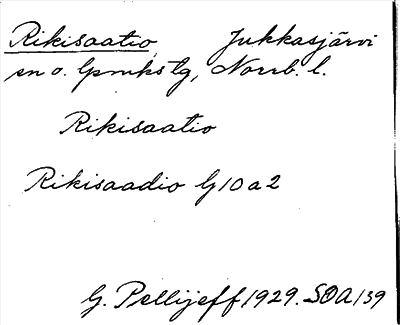 Rikisaatio, Jukkasjärvi
sn o. lpmkstg, Norrb. l.
Rikisaatio
Rikisaadio G10a2
G. Pellijeff 1929. SOA 139